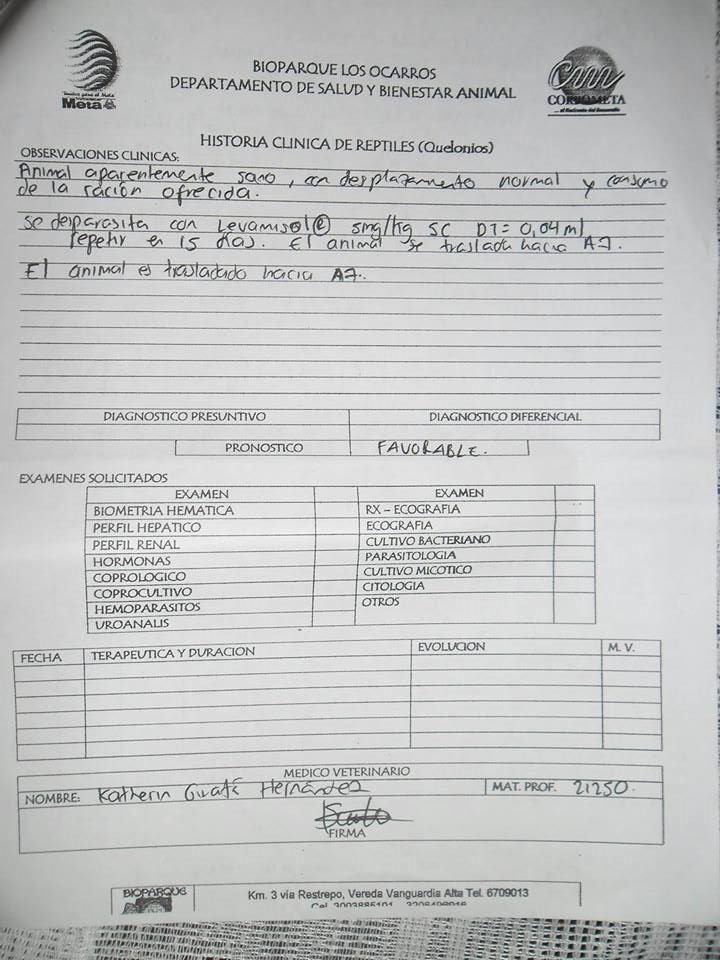 Meta
BIOPARQUE LOS OCARROS
DEPARTAMENTO DE SALUD Y BIENESTAR ANIMAL
cm
CORPOMETA
HISTORIA CLINICA DE REPTILES (Quelonios)
OBSERVACIONES CLINICAS:
Animal aparentemente sano, con desplazamiento normal y consumo
de la ración ofrecida.
Se desparasita con Levamisol® 5mg/kg SC DT= 0,04 ml
repetir en 15 días. El animal se traslada hacia A7.
El animal es trasladado hacia A7.
DIAGNOSTICO PRESUNTIVO DIAGNOSTICO DIFERENCIAL
PRONOSTICO FAVORABLE.
EXAMENES SOLICITADOS
EXAMEN EXAMEN
BIOMETRIA HEMATICA RX – ECOGRAFIA
PERFIL HEPATICO ECOGRAFIA
PERFIL RENAL CULTIVO BACTERIANO
HORMONAS PARASITOLOGIA
COPROLOGICO CULTIVO MICOTICO
COPROCULTIVO CITOLOGIA
HEMOPARASITOS OTROS
UROANALIS
FECHA TERAPEUTICA Y DURACION EVOLUCION M. V.
MEDICO VETERINARIO
NOMBRE: Katherin Hernández MAT. PROF. 21250.
FIRMA
BIOPARQUE Km. 3 vía Restrepo, Vereda Vanguardia Alta Tel. 6709013